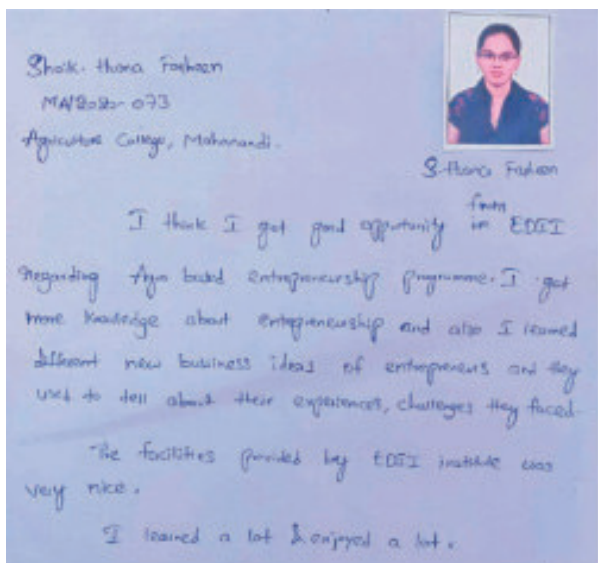 Shaik. Hana Farheen
MA/2020-073
Agricultural College, Mahanandi.
S. Hana Farheen
I think I got good opportunity from in EDII
Regarding Agri based entrepreneurship programme. I got
more knowledge about entrepreneurship and also I learned
different new business ideas of entrepreneurs and they
used to tell about their experiences, challenges they faced.
The facilities provided by EDII institute was
very nice.
I learned a lot & enjoyed a lot.